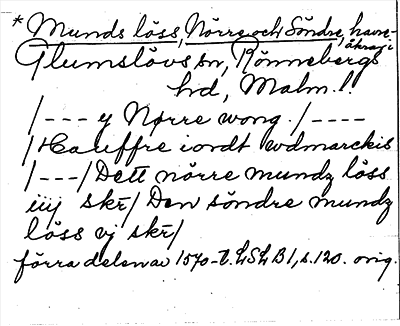 * Munds löss, Nörre och Söndre, havre-
åkrar i
Glumslövs sn, Rönnebergs
hd, Malm. l.
/--- y Nørre wong. /----
/Hauffre iordt wdmarckis
/---/ Dett nörre mundz löss
iiij skr/ Den söndre mundz
löss vj skr/
förra delen av 1570-t. LSLB 1, s. 120. orig.